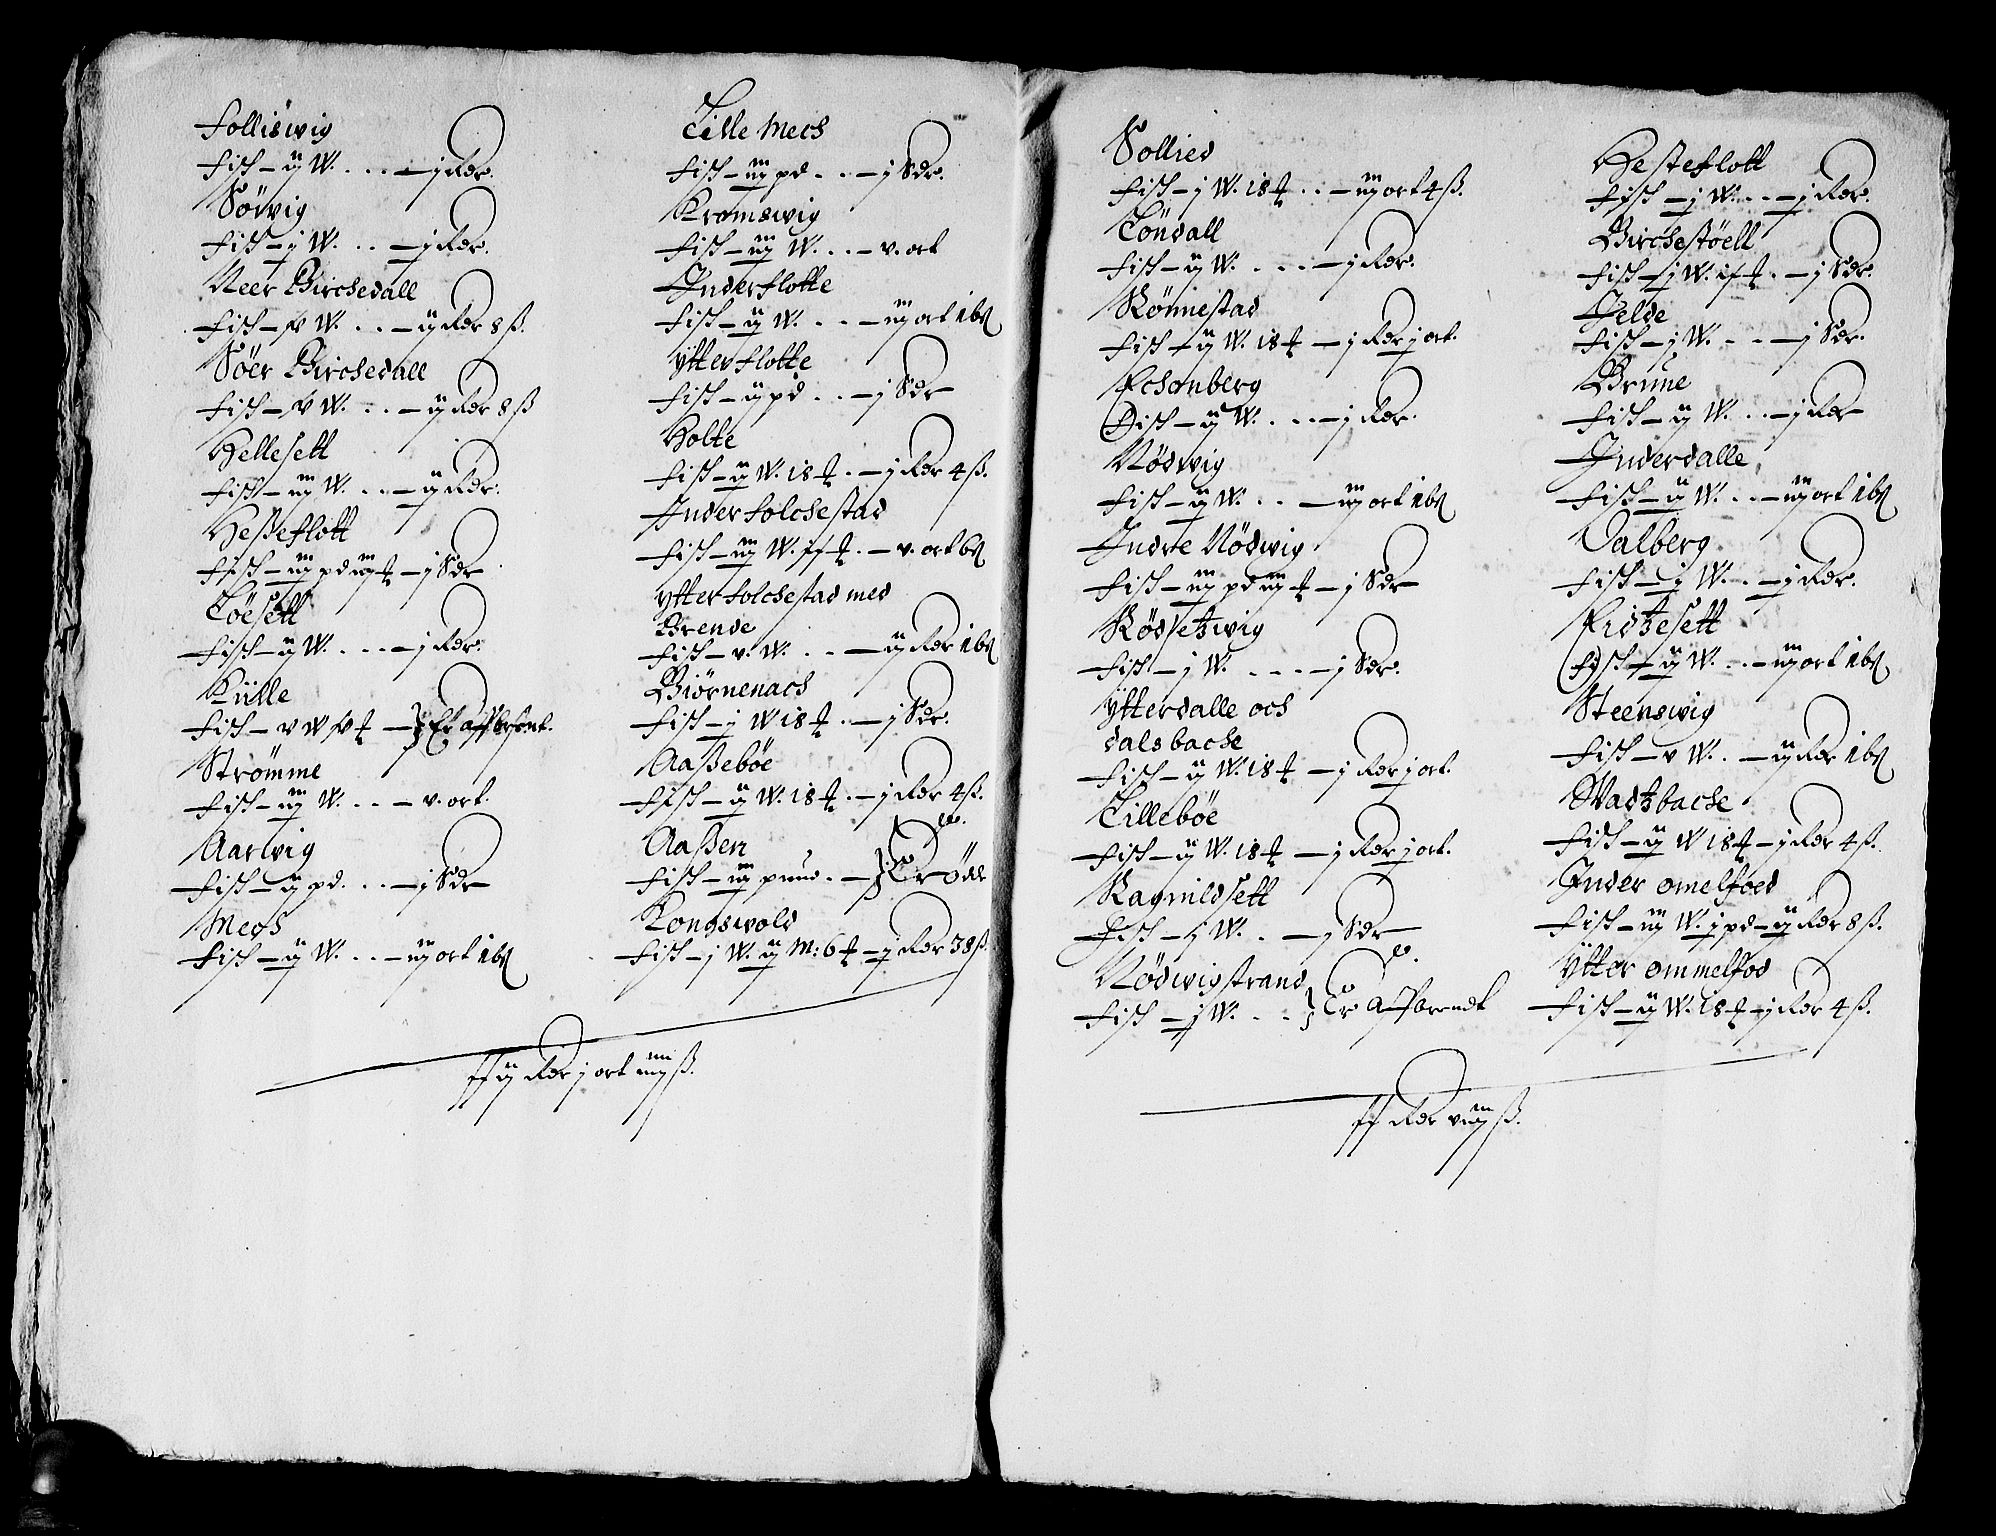 Folliswig
Fisk – ij W. . . . – j Rdr.
Sörvig
Fisk – j W. . . – j Rdr.
Neer Birchedall
Fisk – W. . . – ij Rdr 8 ß.
Söer Birchedall
Fisk – W. . . – ij Rdr 8 ß
Hellesett
Fisk – iij W. . . – ij Rdr.
Hesteflott
Fisk – iij pd iiij ℔ – j Sdr
Löesett
Fisk – ij W. . . . – j Rdr.
Külle
Fisk – v W ℔ – } Er afbrent.
Strömme
Fisk – iij W. . . – v. ort.
Aarwig
Fisk – ij pd. . . – j Sdr
Mech
Fisk – ij W. . . – iij ort 16 ß
Lille Mech
Fisk – iij pd . . – j Sdr.
Kromswig
Fisk – iij W. . . – v. ort
Inderflotte
Fisk – ij W. . . – iij ort 16 ß
Ytterflotte
Fisk – ij pd . . – j Sdr
Holte
Fisk – ij W. 18 ℔ . – j Rdr 4 ß.
Inder folchestad
Fisk – iij W. ℔ . – v. ort 6 ß
Ytter folchestad med
Brende
Fisk – v. W. . . – ij Rdr 16 ß
Biörnenach
Fisk – j W 18 ℔ . – j Sdr.
Aasseböe
Fisk – ij W. 18 ℔ . – j Rdr 4 ß.
Aassen
Fisk – iij pund . – } Er Öde
Kongswold
Fisk – j W. ij M: 6 ℔ – j Rdr 38 ß.
ij Rdr j ort iiij ß.
Sollied
Fisk – j W. 18 ℔ . . – iij ort 4 ß.
Töndall
Fisk – ij W. . . . – j Rdr.
Rönnestad
Fisk – ij W. 18 ℔ – j Rdr j ort.
Echonberg
Fisk – ij W. . . . – j Rdr.
Nödwig
Fisk – ij W. . . – iij ort 16 ß
Indre Nödwig
Fisk – iij pd iij ℔ – j Sdr
Rödsetzwig
Fisk – j W. . . . – j Sdr.
Ytterdalle och
dalsbache
Fisk – ij W. 18 ℔ – j Rdr j ort.
Lilleböe
Fisk – ij W. 18 ℔ – j Rdr j ort.
Ragnildsett
Fisk – j W. . – j Sdr
Nödwigstrand
Fisk – j W. . . } Er Afbrendt
Hesteflott
Fisk – j W. . . – j Rdr.
Birchestöell
Fisk – j W. ℔ . – j Sdr.
Jelde
Fisk – j W. . . – j Sdr.
Brune
Fisk – ij W. . . – j Rdr
Inderdalle
Fisk – ij W. . . – iij ort 16 ß
Dalberg
Fisk – j W. . . – j Rdr.
Eidtzesett
Fisk – ij W. . . – iij ort 16 ß
Steenswig
Fisk – v W. . – ij Rdr 16 ß
Wadtzbache
Fisk – ij W 18 ℔ – j Rdr 4 ß.
Inder omelfoed
Fisk – iij W. j pd – ij Rdr 8 ß.
Ytter ommelfod
Fisk – ij W. 18 ℔ – j Rdr 4 ß.
Rdr viij ß.